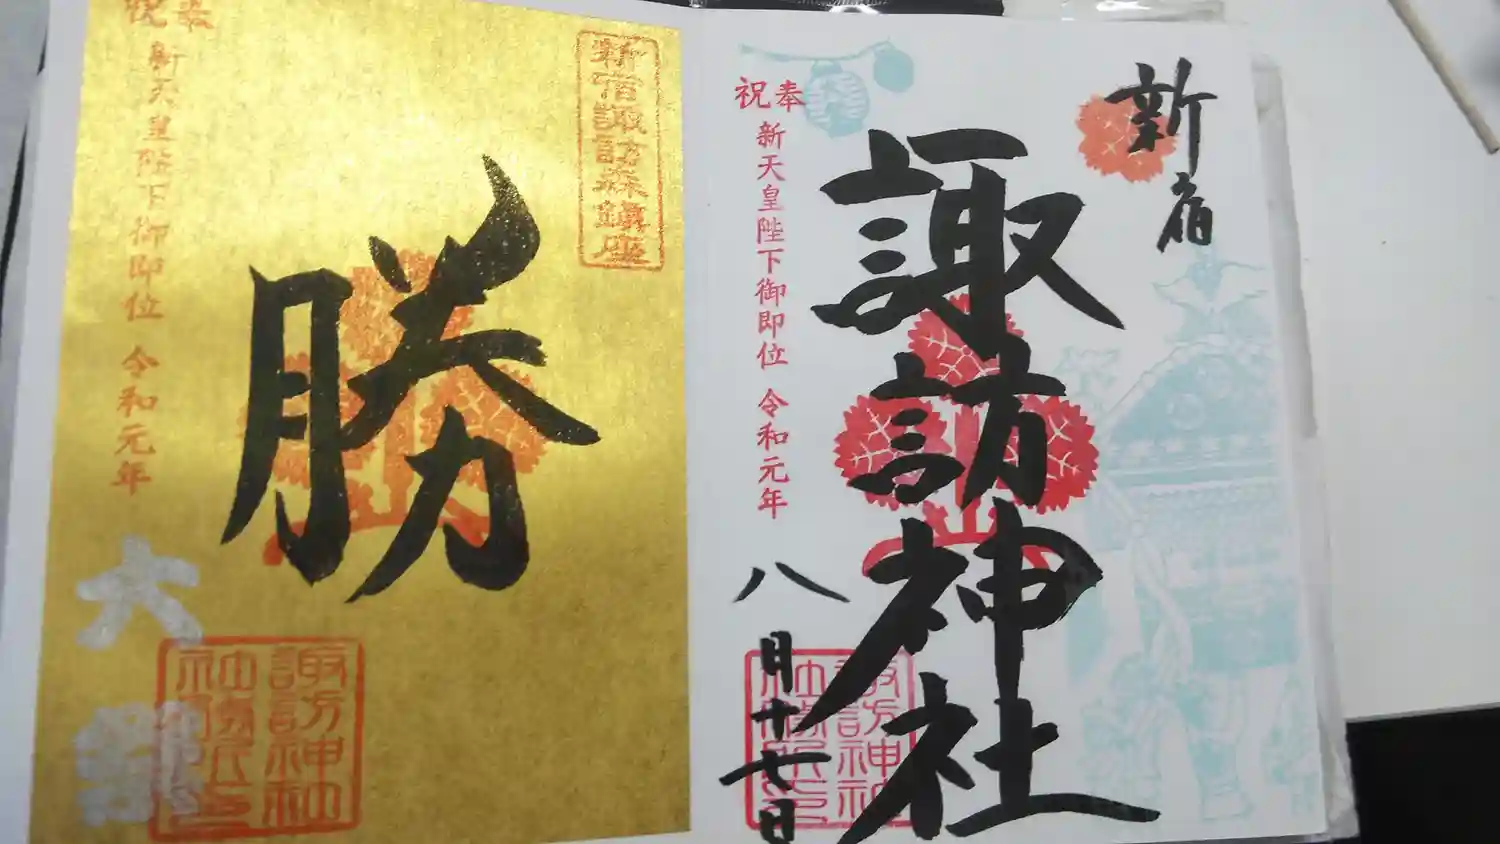 新宿
諏訪神社
奉祝
新天皇陛下御即位 令和元年
八月十七日
新宿諏訪森鎮座
勝
奉祝
新天皇陛下御即位 令和元年
諏訪神社